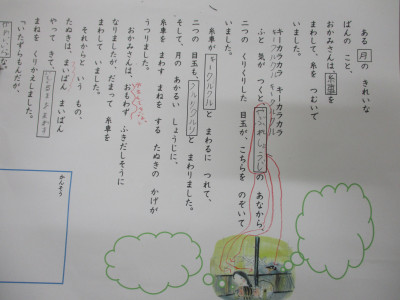 ある 月の きれいな
ばんの こと、
おかみさんは、糸車を
まわして、糸を つむいで
いました。
キーカラカラ キーカラカラ
キークルクル キークルクル
ふと 気が つくと、やぶれしょうじの あなから、
二つの くりくりした 目玉が、こちらを のぞいて
いました。
糸車が キークルクルと まわるに つれて、
二つの 目玉も、クルリクルリと まわりました。
そして、月の あかるい しょうじに、
糸車を まわす まねを する たぬきの かげが
うつりました。
おかみさんは、おもわず ふきだしそうに
なりましたが、だまって 糸車を
まわして いました。
それからと いう もの、
たぬきは、まいばん まいばん
やって きて、
まねを くりかえしました。
「いたずらもんだが、
かんそう